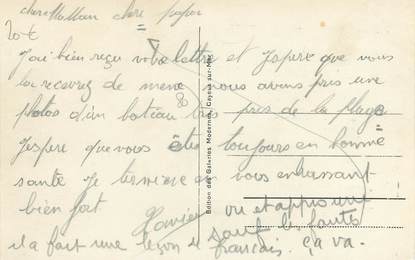 chere Maman chere papa
20€
J'ai bien reçu votre lettre et J'spere que vous
la recevrez de meme nous avons pris une
photos d'un bateau tres pres de la plage
J'espere que vous êtes toujours en bonne
santé Je termine en vous embrassant
bien fort
Xavier
vu et approuvé
sauf les fautes
il a fait une leçon de francais. ça va.
Edition des Galeries Modernes, Cayeux-sur-Mer